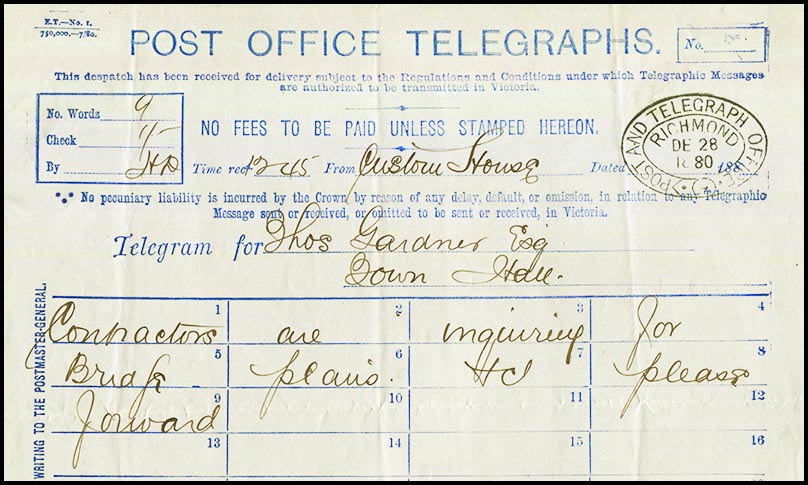 E.T.—No. 1.
750,000.—7/80.
POST OFFICE TELEGRAPHS.
No.
This despatch has been received for delivery subject to the Regulations and Conditions under which Telegraphic Messages
are authorized to be transmitted in Victoria.
No. Words 9
Check
By HD
NO FEES TO BE PAID UNLESS STAMPED HEREON.
Time recd 12 45 From Custom House Dated 188
POST AND TELEGRAPH OFFICE
RICHMOND
DE 28
18 80
No pecuniary liability is incurred by the Crown by reason of any delay, default, or omission, in relation to any Telegraphic
Message sent or received, or omitted to be sent or received, in Victoria.
Telegram for Thos Gardner Esq
Town Hall.
WRITING TO THE POSTMASTER-GENERAL.
1 2 3 4
Contractors are inquiring for
5 6 7 8
Bridge plans. please
9 10 11 12
forward
13 14 15 16